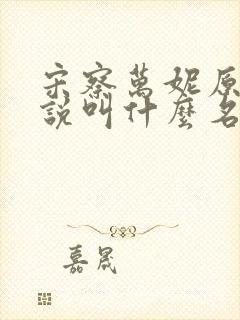 宋察萬妮原
說叫什麼名
嘉晟